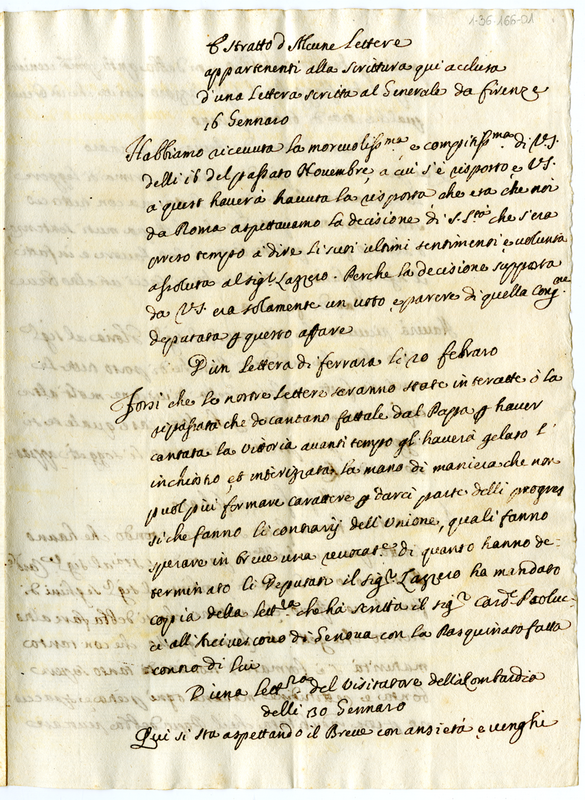 1-36-166-01
Estratto d'Alcune Lettere
appartenenti alla scrittura qui acclusa
d'una Lettera scritta al Generale da Firenze
16 Gennaro
Habbiamo ricevuta la morevolissma, e compitissma di VS.
delli 16 del passato Novembre, a cui s'è risposto e VS.
a quest haverà havuta la risposta che era che noi
da Roma aspettavamo la decisione di S. Stà che s'era
preso tempo à dire li suoi ultimi sentimenti e volontà
assoluta al sigr Lazzero. Perche la decisione supposta
da VS. era solamente un voto e parere di quella Congne
deputata p questo affare
D'un Lettera di ferrara li 20 febraro
Forsi che le nostre Lettere seranno state intercette ò la
che decantano fattale dal Papa p haver
cantata la vittoria avanti tempo gl' haverà gelato l'
inchiostro et interizzata la mano di maniera che non
puol piu formare carattere p darci parte delli progres
si che fanno li contrarij dell'Unione, quali fanno
sperare in breve una revocate di quanto hanno de-
terminato li Deputati il sigr Lazzero ha mandato
copia della lettra che hà scritta il sigr Cardl Paoluc-
ci all'Arcivescovo di Genova con la Pasquinata fatta
contro di lui
D'una Lettra del Visitatore della Lombardia
delli 30 Gennaro
Qui si sta aspettando il Breve con ansietà e venghi